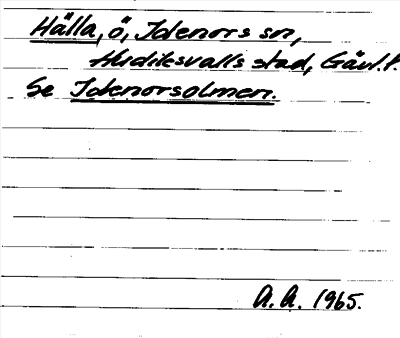 Hälla, ö, Idenors sn,
Hudiksvalls stad, Gävl.l.
Se Idenorsolmen.
A.A. 1965.